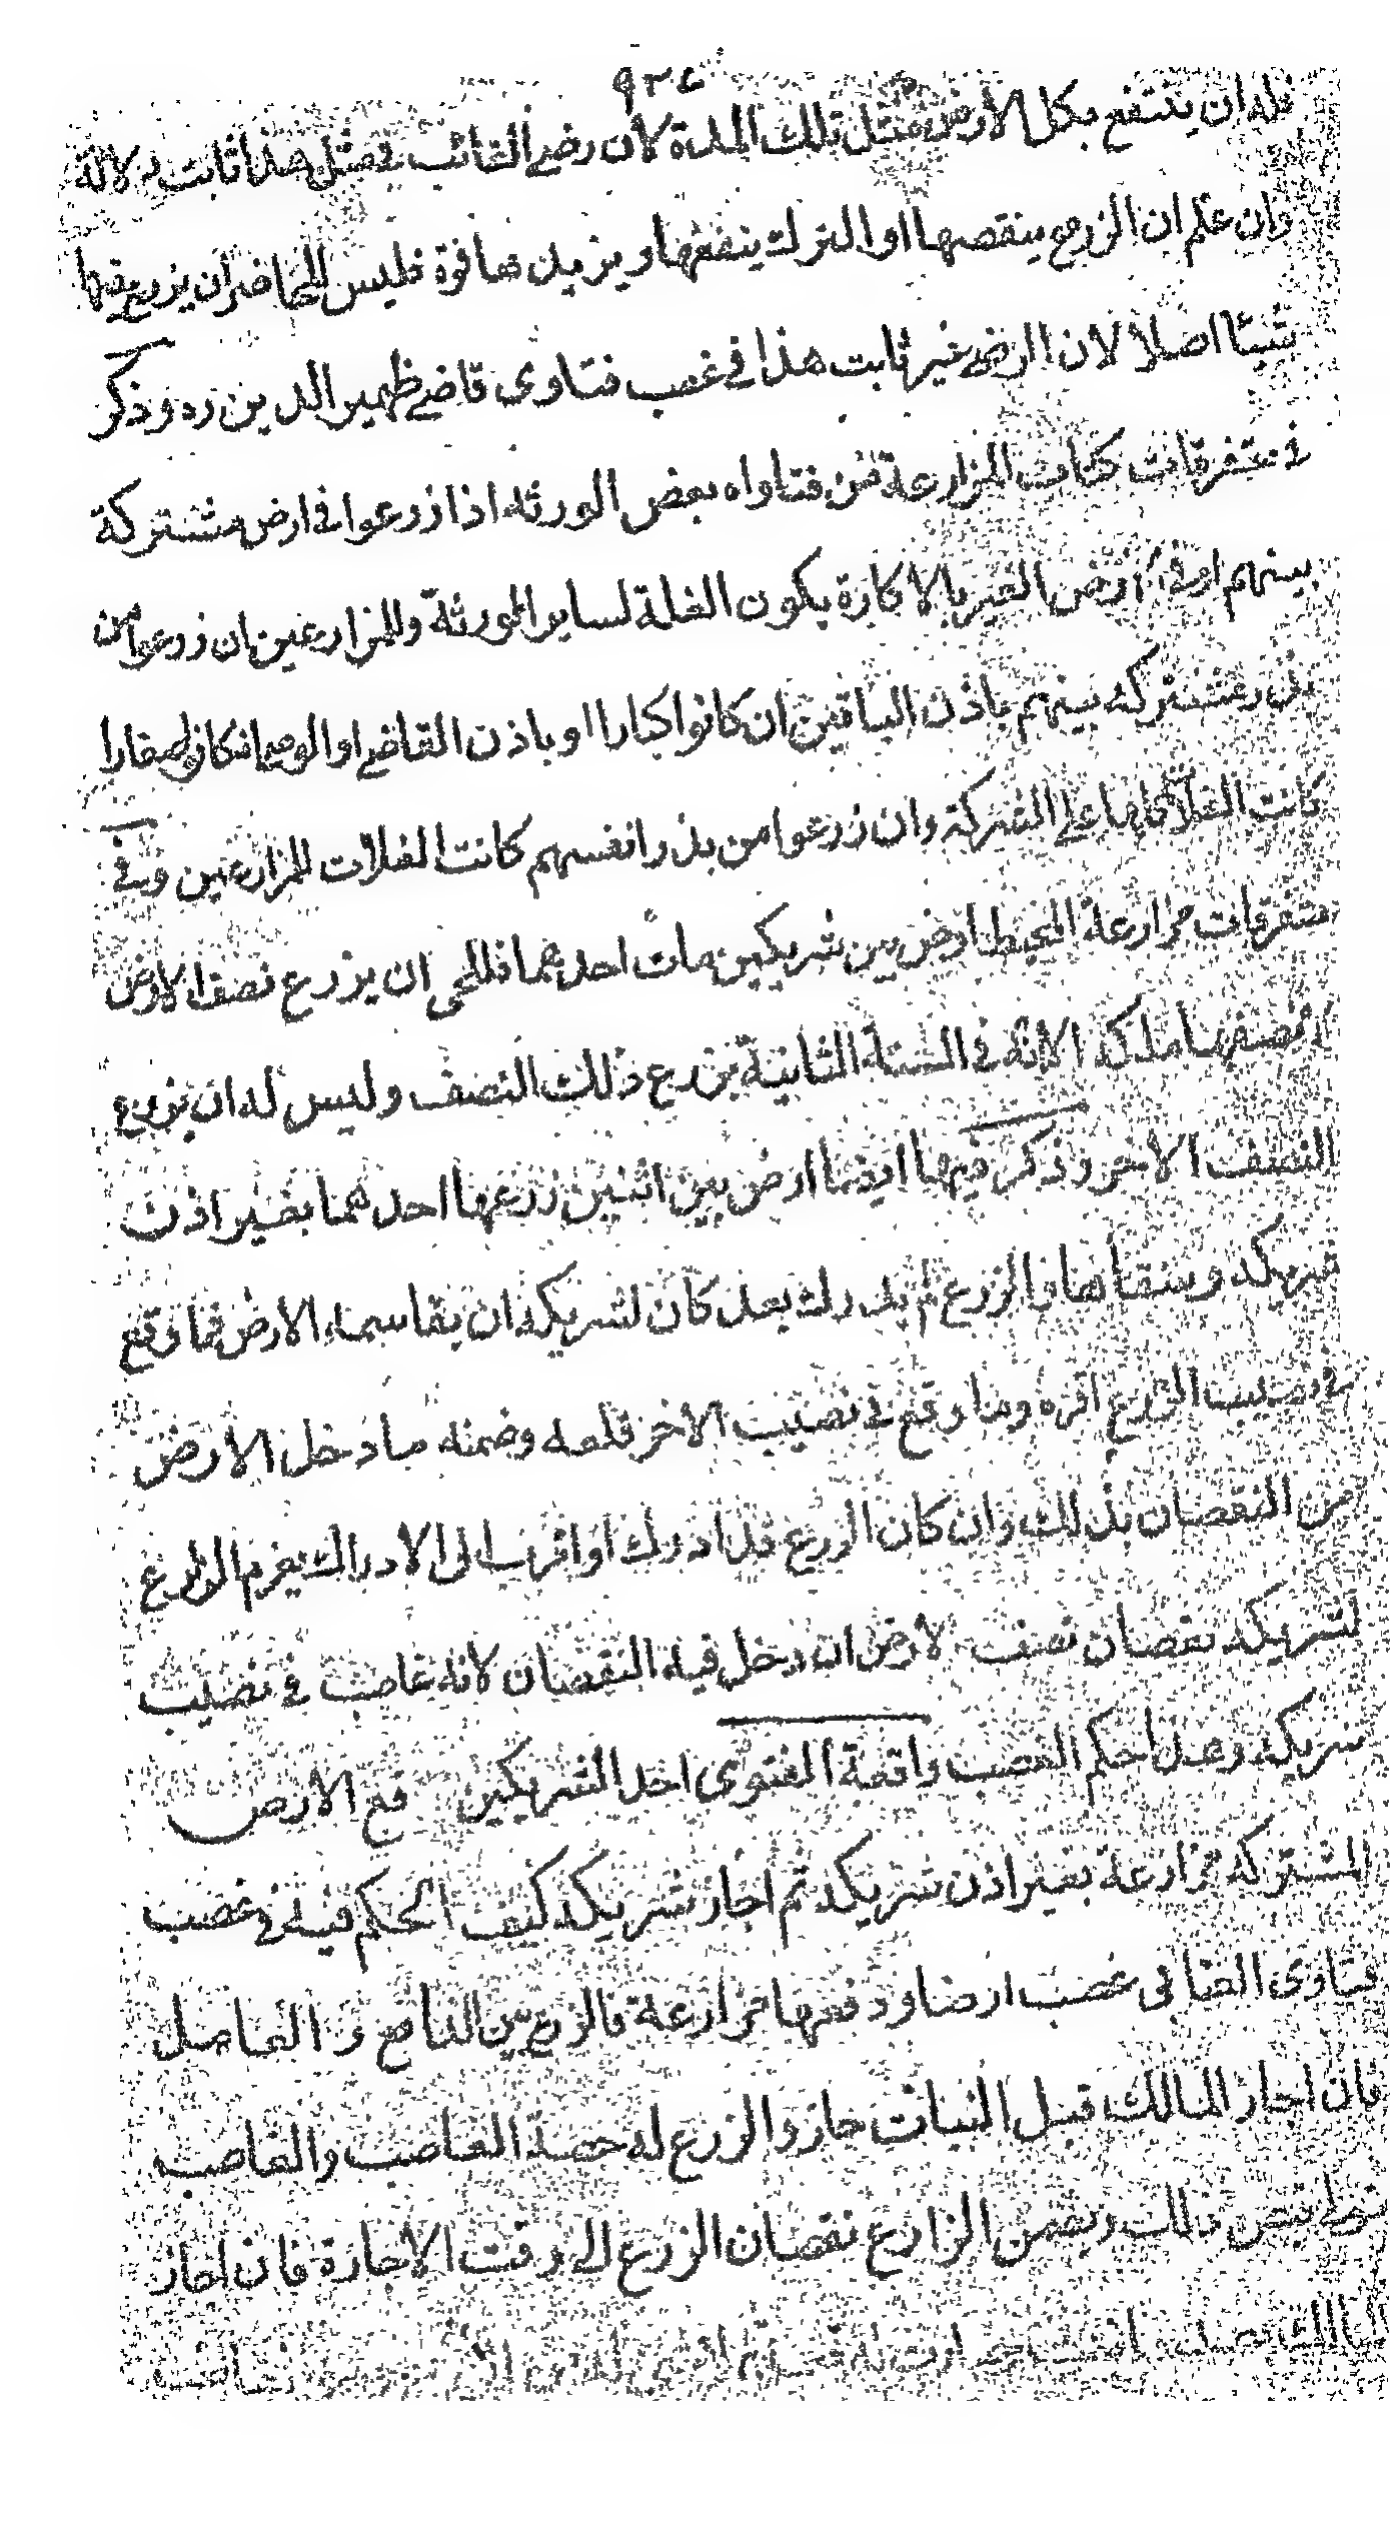 ٩٣٤
فله ان ينتفع بكل الارض مثل تلك المدة لان رضى الغائب في مثل هذا ثابت دلالة
وان علم ان الزرع ينقصها او الترك ينفعها ويزيدها قوة فليس للحاضر ان يزرع فيها
شيئا اصلا لان الرضى غير ثابت هذا في غصب فتاوى قاضي ظهير الدين ره وذكر
في متفرقات كتاب المزارعة من فتاواه بعض الورثة اذا زرعوا في ارض مشتركة
بينهم او في ارض الغير بالاكارة يكون الغلة لساير الورثة وللمزارعين ان زرعوا من
بذر مشتركة بينهم باذن الباقين ان كانوا كبارا او باذن القاضي او الوصي ان كانوا صغارا
كانت الغلات كلها على الشركة وان زرعوا من بذر انفسهم كانت الغلات للمزارعين وفي
متفرقات مزارعة المحيط ارض بين شريكين مات احدهما فللحي ان يزرع نصف الارض
نصفها ملكه الا انه في السنة الثانية يزرع ذلك النصف وليس له ان يزرع
النصف الاخر وذكر فيها ايضا ارض بين اثنين زرعها احدهما بغير اذن
شريكه وسقاها والزرع لم يدرك بعد كان لشريكه ان يقاسمه الارض فما وقع
في نصيب الزارع اقره وما وقع في نصيب الاخر قلعه وضمنه ما دخل الارض
من النقصان بذلك وان كان الزرع قد ادرك او اقرب الى الادراك يغرم الزارع
لشريكه نقصان نصف الارض ان دخل فيه النقصان لانه غاصب في نصيب
شريكه وهذا حكم الغصب واقعة الفتوى احد الشريكين دفع الارض
المشتركة مزارعة بغير اذن شريكه ثم اجاز شريكه كيف الحكم فيه في غصب
فتاوى العتابي غصب ارضا ودفعها مزارعة فالزرع بين الغاصب والعامل
فان اجاز المالك قبل النبات جاز والزرع له حصة الغاصب والغاصب
نقض ذلك ويضمن الزارع نقصان الزرع الى وقت الاجازة فان اجاز
المالك